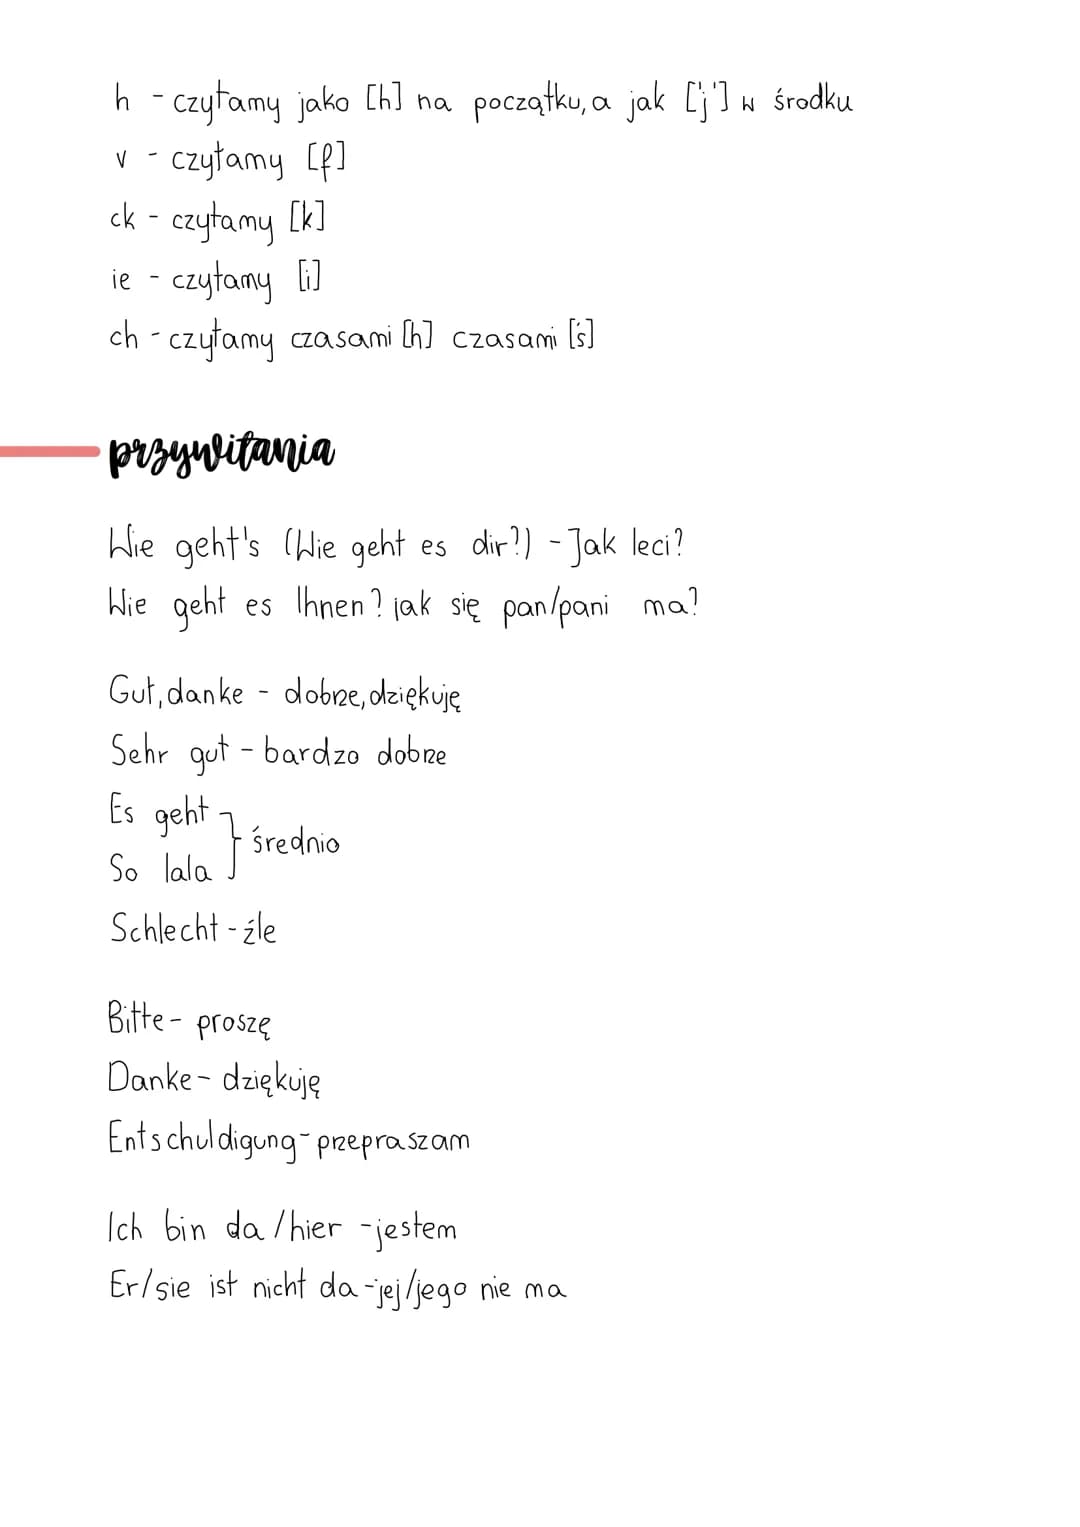 h - czytamy jako [h] na początku, a jak ['j'] w środku
v - czytamy [f]
ck - czytamy [k]
ie - czytamy [i]
ch - czytamy czasami [h] czasami [ś]
przywitania
Wie geht's (Wie geht es dir?) - Jak leci?
Wie geht es Ihnen? jak się pan/pani ma?
Gut, danke - dobrze, dziękuję
Sehr gut - bardzo dobrze
Es geht
So lala } średnio
Schlecht - źle
Bitte - proszę
Danke - dziękuję
Entschuldigung - przepraszam
Ich bin da / hier - jestem
Er/sie ist nicht da - jej/jego nie ma